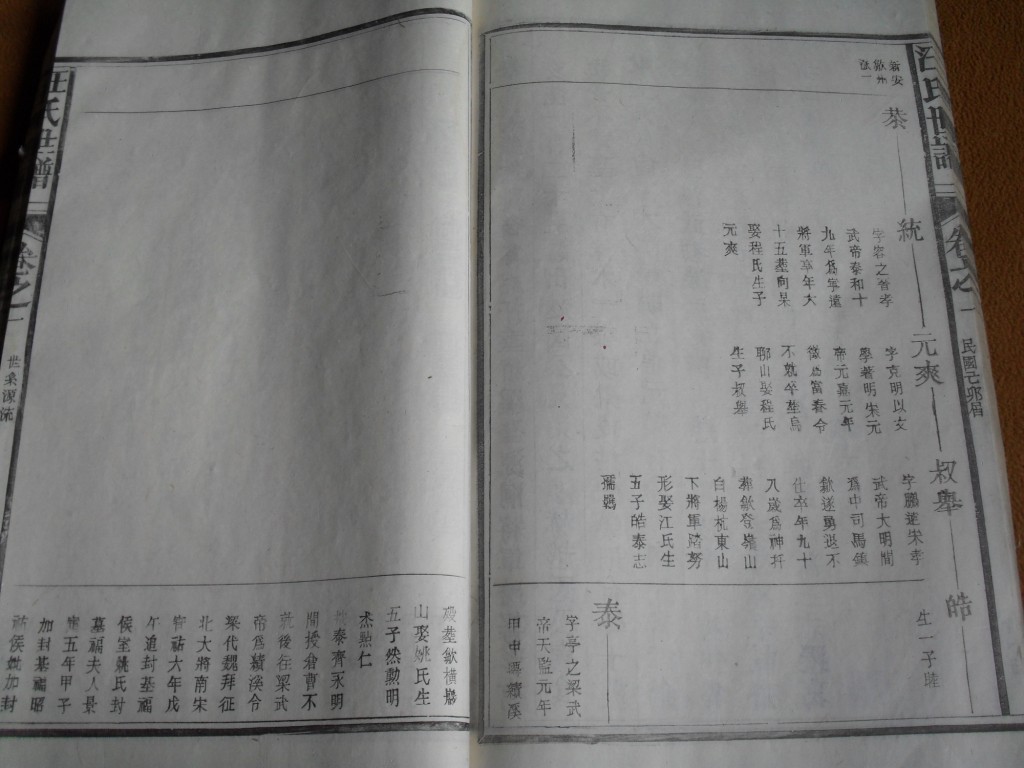 汪氏世譜
卷之一
民國乙卯眉
新安
徽州
恭
統
武帝泰和十
九年為寧遠
將軍卒年六
十五墓向杲
娶程氏生子
元爽
元爽
字克明以文
學著明宋元
帝元嘉元年
徵為當春令
不就卒塟烏
聊山娶程氏
生子叔舉
叔舉
字鵬逺宋孝
武帝大明間
為中司馬鎮
歙遂勇退不
仕卒年九十
八歲為神折
券歙登嶺山
白楊杭東山
下將軍
形娶江氏生
五子皓泰志
孺
皓
生一子睦
泰
字亭之梁武
帝天監元年
由中
山娶姚氏生
五子然勳明
杰㸃仁
泰齊永明
間授倉曹不
就後在梁武
帝為績溪令
梁代魏拜征
北大將南宋
寶祐六年戊
午追封基福
侯室姚氏封
基福夫人景
定五年甲子
加封基福昭
祐侯 加封
汪氏世譜
卷之一
世系源流